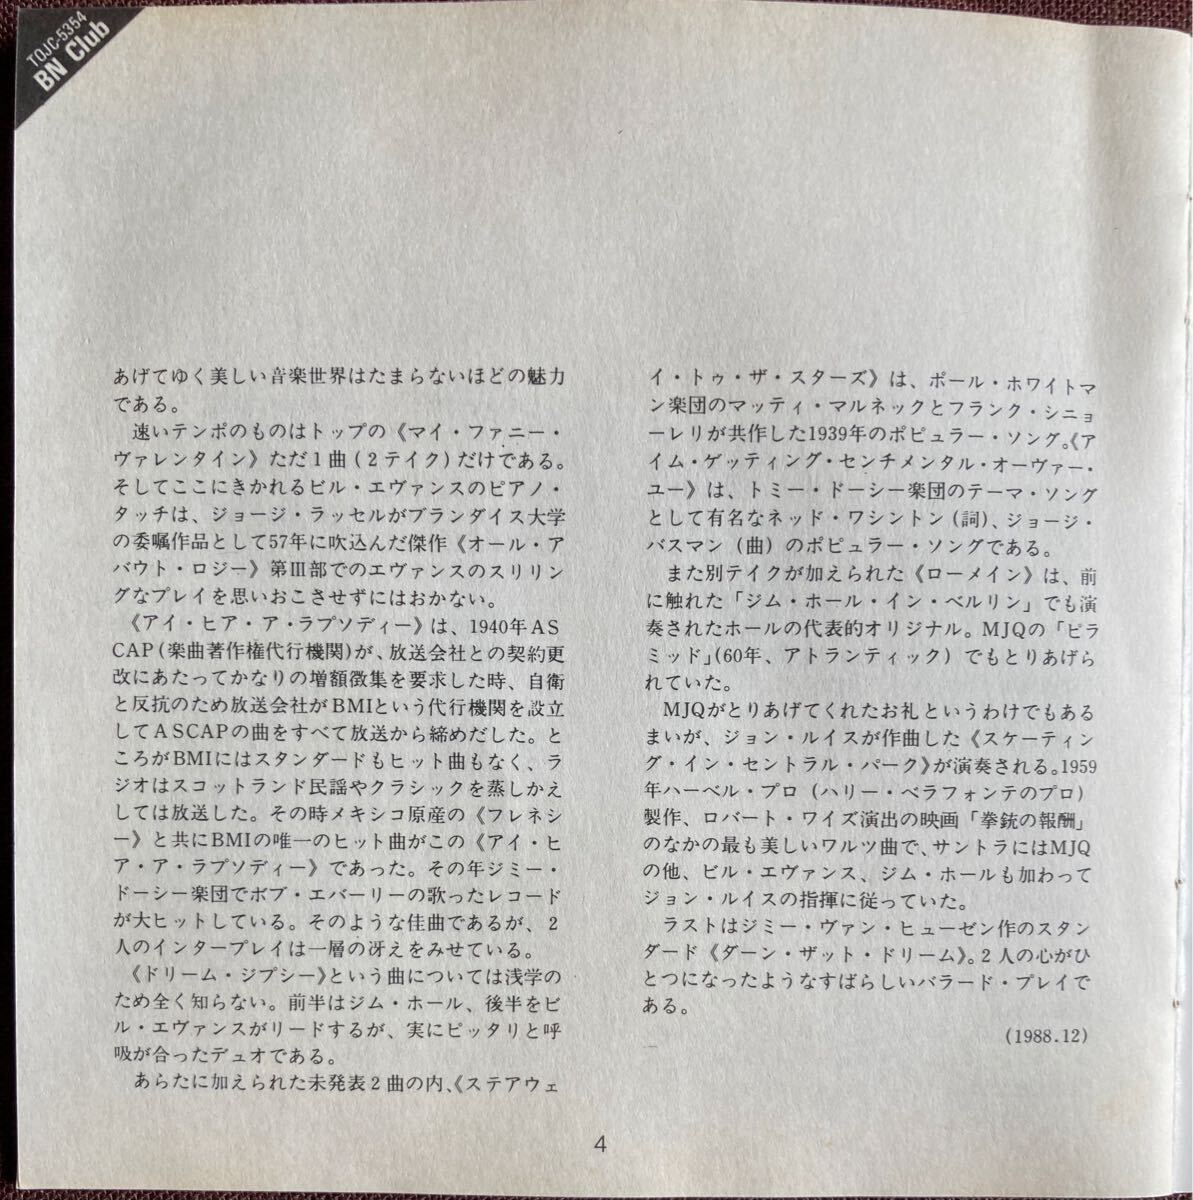 TOJC-5354
BN Club
あげてゆく美しい音楽世界はたまらないほどの魅力
である。
速いテンポのものはトップの《マイ・ファニー・
ヴァレンタイン》ただ1曲(2テイク)だけである。
そしてここにきかれるビル・エヴァンスのピアノ・
タッチは、ジョージ・ラッセルがブランダイス大学
の委嘱作品として57年に吹込んだ傑作《オール・ア
バウト・ロジー》第Ⅲ部でのエヴァンスのスリリン
グなプレイを思いおこさせずにはおかない。
《アイ・ヒア・ア・ラプソディー》は、1940年AS
CAP(楽曲著作権代行機関)が、放送会社との契約更
改にあたってかなりの増額徴集を要求した時、自衛
と反抗のため放送会社がBMIという代行機関を設立
してASCAPの曲をすべて放送から締めだした。と
ころがBMIにはスタンダードもヒット曲もなく、ラ
ジオはスコットランド民謡やクラシックを蒸しかえ
しては放送した。その時メキシコ原産の《フレネシ
ー》と共にBMIの唯一のヒット曲がこの《アイ・ヒ
ア・ア・ラプソディー》であった。その年ジミー・
ドーシー楽団でボブ・エバーリーの歌ったレコード
が大ヒットしている。そのような佳曲であるが、2
人のインタープレイは一層の冴えをみせている。
《ドリーム・ジプシー》という曲については浅学の
ため全く知らない。前半はジム・ホール、後半をビ
ル・エヴァンスがリードするが、実にピッタリと呼
吸が合ったデュオである。
あらたに加えられた未発表2曲の内、《ステアウェ
イ・トゥ・ザ・スターズ》は、ポール・ホワイトマ
ン楽団のマッティ・マルネックとフランク・シニョ
ーレリが共作した1939年のポピュラー・ソング。《ア
イム・ゲッティング・センチメンタル・オーヴァー・
ユー》は、トミー・ドーシー楽団のテーマ・ソング
として有名なネッド・ワシントン(詞)、ジョージ・
バスマン(曲)のポピュラー・ソングである。
また別テイクが加えられた《ローメイン》は、前
に触れた「ジム・ホール・イン・ベルリン」でも演
奏されたホールの代表的オリジナル。MJQの「ピラ
ミッド」(60年、アトランティック)でもとりあげら
れていた。
MJQがとりあげてくれたお礼というわけでもある
まいが、ジョン・ルイスが作曲した《スケーティン
グ・イン・セントラル・パーク》が演奏される。1959
年ハーベル・プロ(ハリー・ベラフォンテのプロ)
製作、ロバート・ワイズ演出の映画「拳銃の報酬」
のなかの最も美しいワルツ曲で、サントラにはMJQ
の他、ビル・エヴァンス、ジム・ホールも加わって
ジョン・ルイスの指揮に従っていた。
ラストはジミー・ヴァン・ヒューゼン作のスタン
ダード《ダーン・ザット・ドリーム》。2人の心がひ
とつになったようなすばらしいバラード・プレイで
ある。
(1988.12)
4